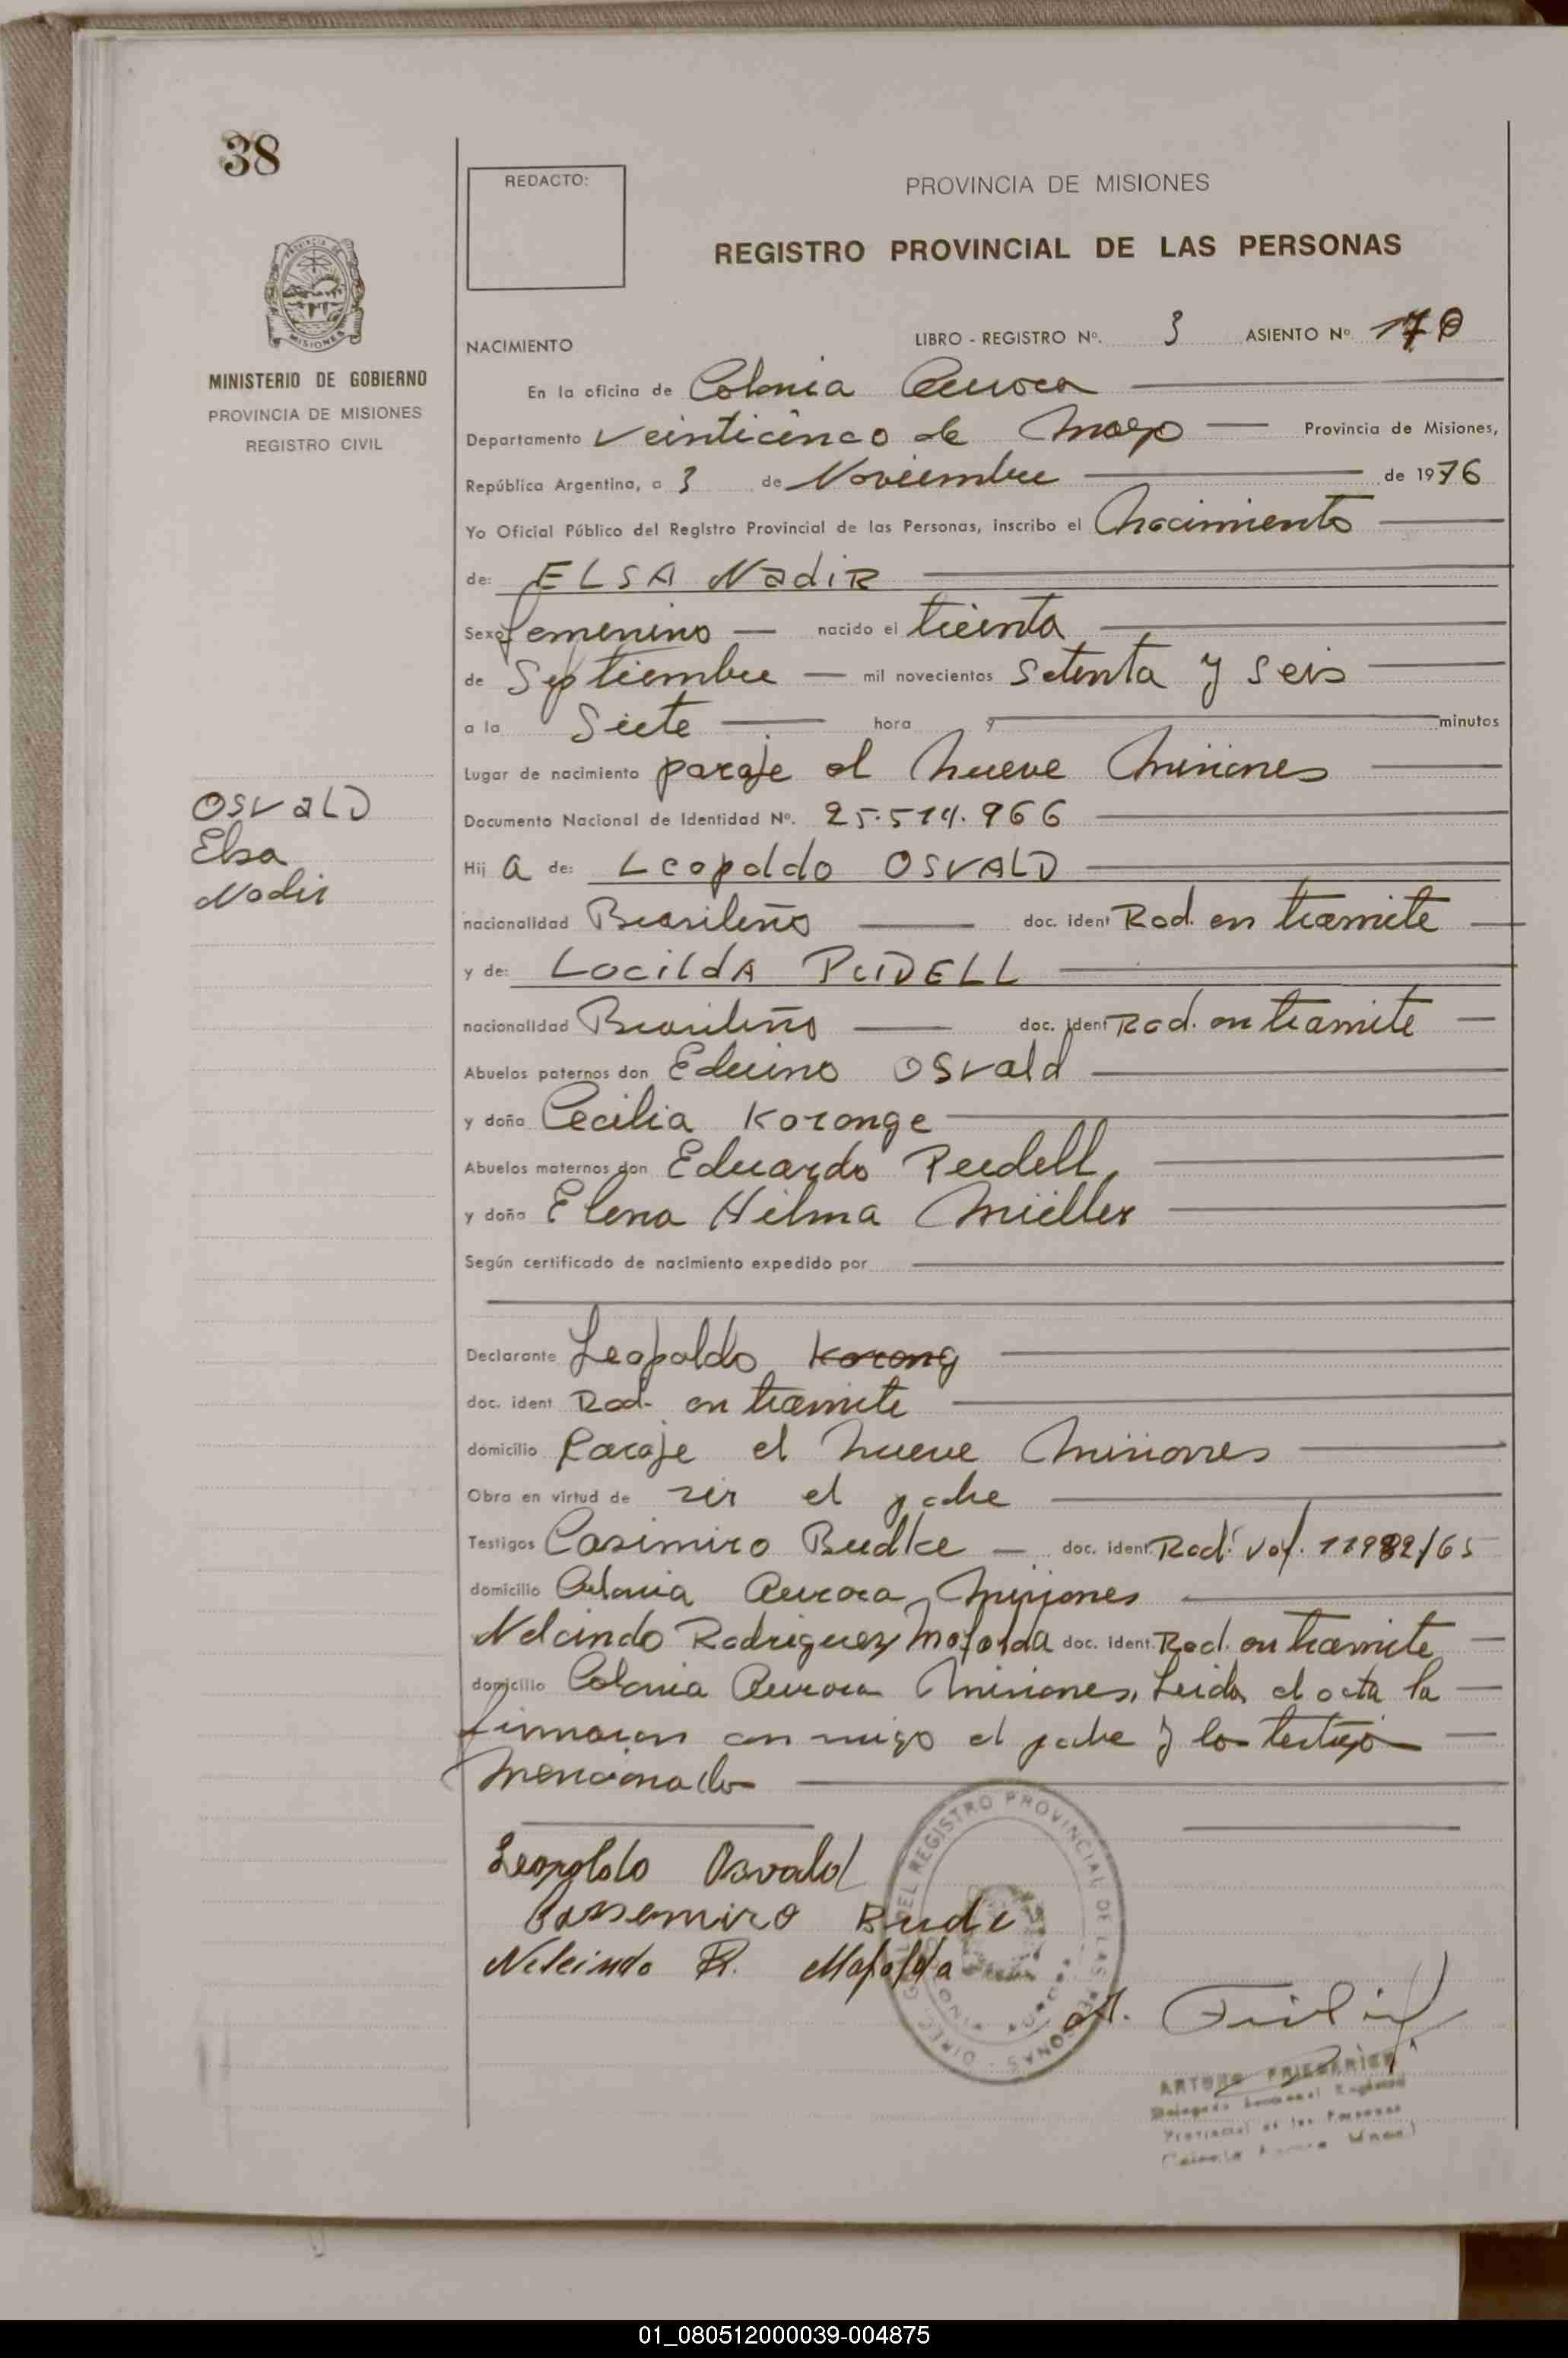 38
REDACTO:
PROVINCIA DE MISIONES
REGISTRO PROVINCIAL DE LAS PERSONAS
MISIONES
MINISTERIO DE GOBIERNO
PROVINCIA DE MISIONES
REGISTRO CIVIL
NACIMIENTO LIBRO - REGISTRO Nº. 3 ASIENTO Nº 170
En la oficina de Colonia Aurora
Departamento Veinticinco de Mayo Provincia de Misiones,
República Argentina, a 3 de Noviembre de 1976
Yo Oficial Público del Registro Provincial de las Personas, inscribo el Nacimiento
de: ELSA NadiR
Sexo femenino nacido el treinta
de Septiembre mil novecientos Setenta y Seis
a la Siete hora y minutos
Lugar de nacimiento paraje el Nueve Misiones
Documento Nacional de Identidad Nº. 25.514.966
OSValD
Elsa
Nadir
Hij a de: Leopoldo OSVALD
nacionalidad Brasileño doc. ident Rad. en tramite
y de: LocildA PUDELL
nacionalidad Brasileño doc. ident Rad. en tramite
Abuelos paternos don Eduino OSvald
y doña Cecilia Koronge
Abuelos maternos don Eduardo Pudell
y doña Elena Hilma Müller
Según certificado de nacimiento expedido por
Declarante Leopoldo Korong
doc. ident Rad. en tramite
domicilio Paraje el Nueve Misiones
Obra en virtud de ser el padre
Testigos Casimiro Budke doc. ident. Rad. 11982/65
domicilio Colonia Aurora Misiones
Nelcindo Rodriguez Mafalda doc. ident. Rad. en tramite
domicilio Colonia Aurora Misiones, Leida el acta la
firmaron con migo el padre y los testigos
mencionados
Leopoldo Osvald
Cassemiro Bude
Nelcindo R. Mafalda
DIREC. GRAL. DEL REGISTRO PROVINCIAL DE LAS PERSONAS
ARTURO FRIEDERICH
Provincial de las Personas
01_080512000039-004875